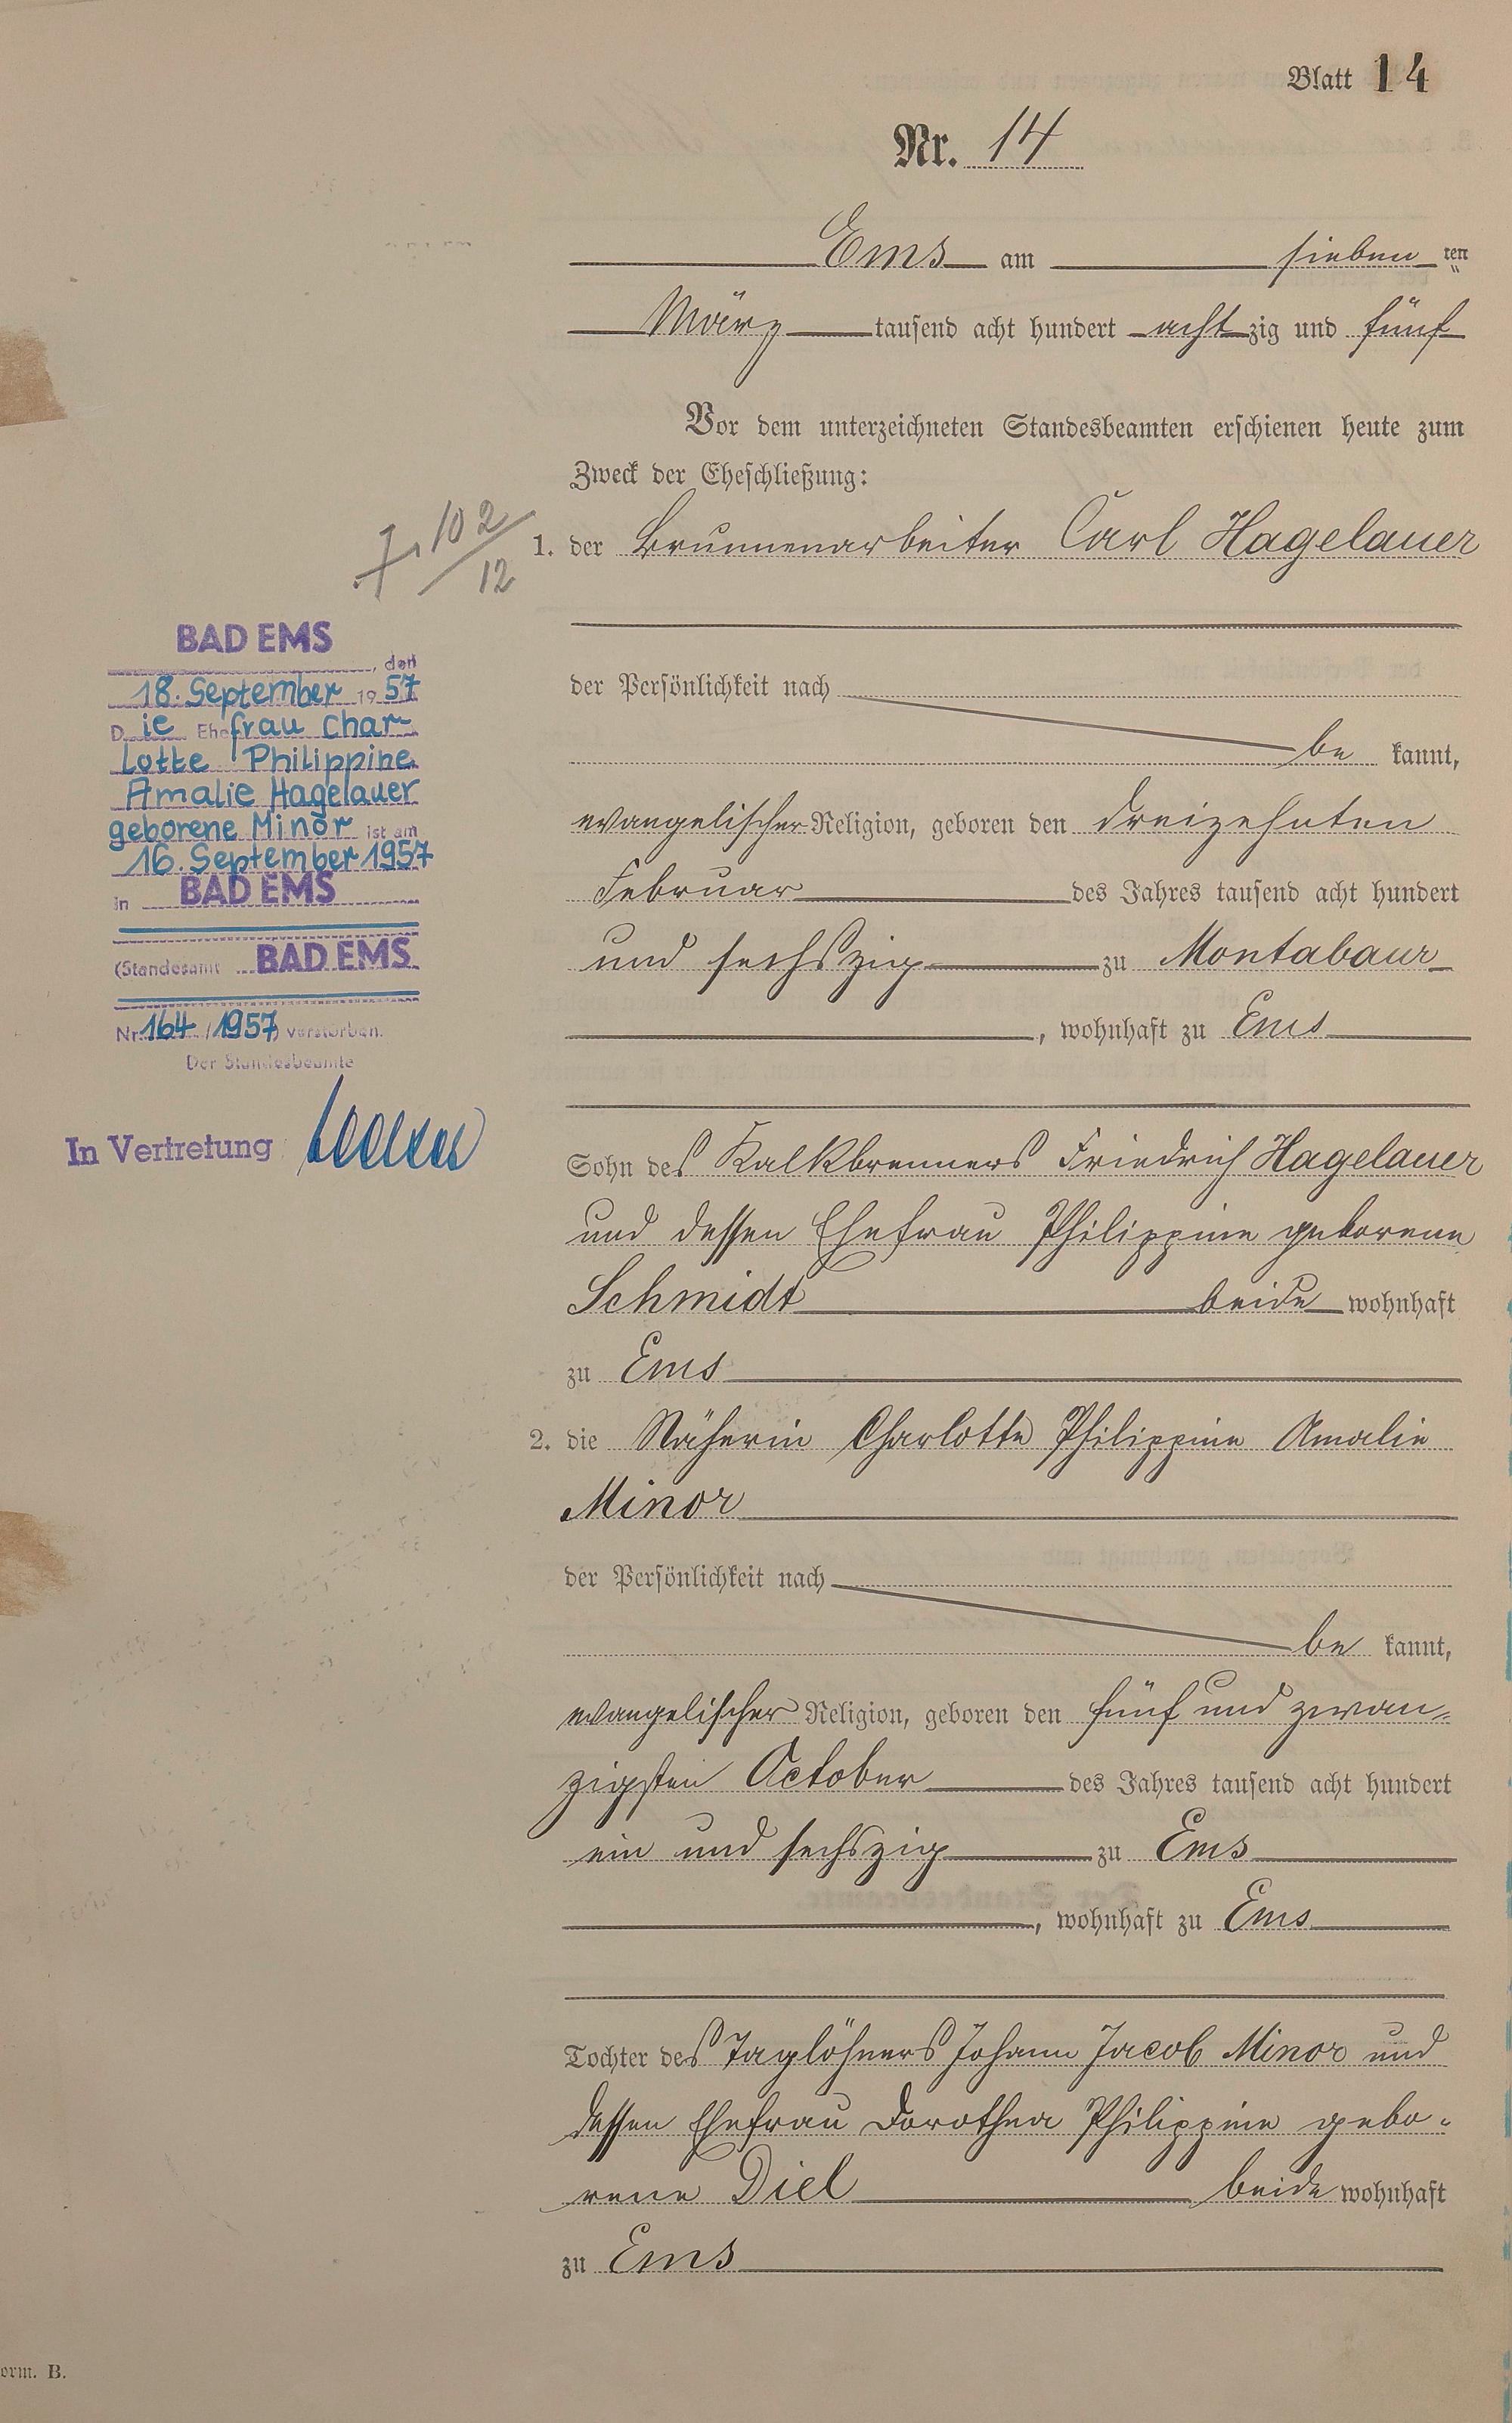 Blatt 14
Nr. 14
Ems am sieben ten
März tausend acht hundert acht zig und fünf
Vor dem unterzeichneten Standesbeamten erschienen heute zum
Zweck der Eheschließung:
1. der Brunnenarbeiter Carl Hagelauer
der Persönlichkeit nach
be kannt,
evangelischer Religion, geboren den dreizehnten
Februar des Jahres tausend acht hundert
und sechszig zu Montabaur
, wohnhaft zu Ems
Sohn des Kalkbrenners Friedrich Hagelauer
und dessen Ehefrau Philippine geborene
Schmidt beide wohnhaft
zu Ems
2. die Näherin Charlotte Philippine Amalie
Minor
der Persönlichkeit nach
be kannt,
evangelischer Religion, geboren den fünf und zwan-
zigsten October des Jahres tausend acht hundert
ein und sechszig zu Ems
, wohnhaft zu Ems
Tochter des Taglöhners Johann Jacob Minor und
dessen Ehefrau Dorothea Philippine gebo-
rene Diel beide wohnhaft
zu Ems
102/12
BAD EMS
, den
18. September 1957
Die Ehefrau Char-
lotte Philippine
Amalie Hagelauer
geborene Minor ist am
16. September 1957
in BAD EMS
(Standesamt BAD EMS
Nr. 164 / 1957) verstorben.
Der Standesbeamte
In Vertretung
orm. B.